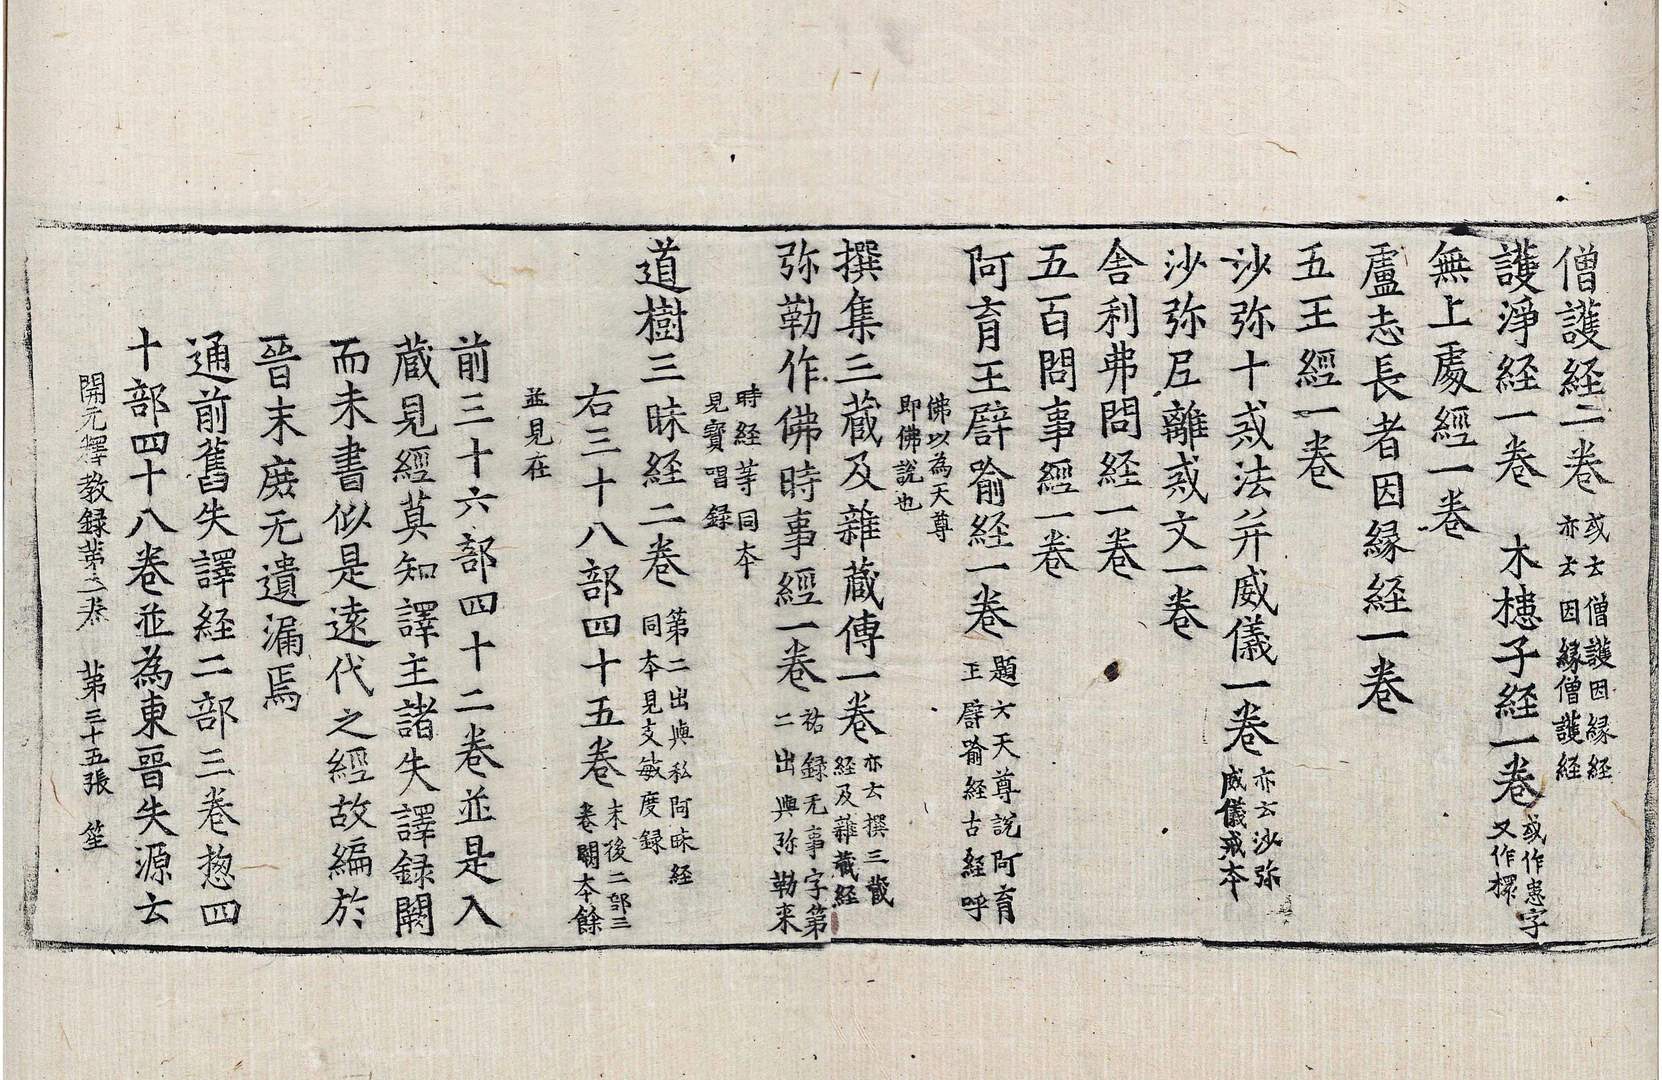 僧護經二卷 或云僧護因緣経 亦云因緣僧護経
護淨経一卷 木槵子経一卷 或作患字 又作槵
無上處經一卷
盧志長者因縁経一卷
五王經一卷
沙弥十戒法并威儀一卷 亦云沙弥威儀戒本
沙弥尼離戒文一卷
舎利弗問経一卷
五百問事經一卷
阿育王譬喻経一卷 題云天尊說阿育王譬喻経古経呼
佛以為天尊即佛說也
撰集三蔵及雜蔵傳一卷 亦云撰三蔵経及雜蔵経
弥勒作佛時事経一卷 祐録无事字第二出與弥勒来
時経等同夲見寳唱録
道樹三昧経二卷 第二出與私阿昧経同夲見支敏度録
右三十八部四十五卷 末後二部三卷闕夲餘
並見在
前三十六部四十二卷並是入
蔵見經莫知譯主諸失譯録闕
而未書似是遠代之經故編於
晉末庶无遺漏焉
通前舊失譯経二部三卷揔四
十部四十八卷並為東晉失源云
開元釋教録苐三卷 苐三十五張 笙